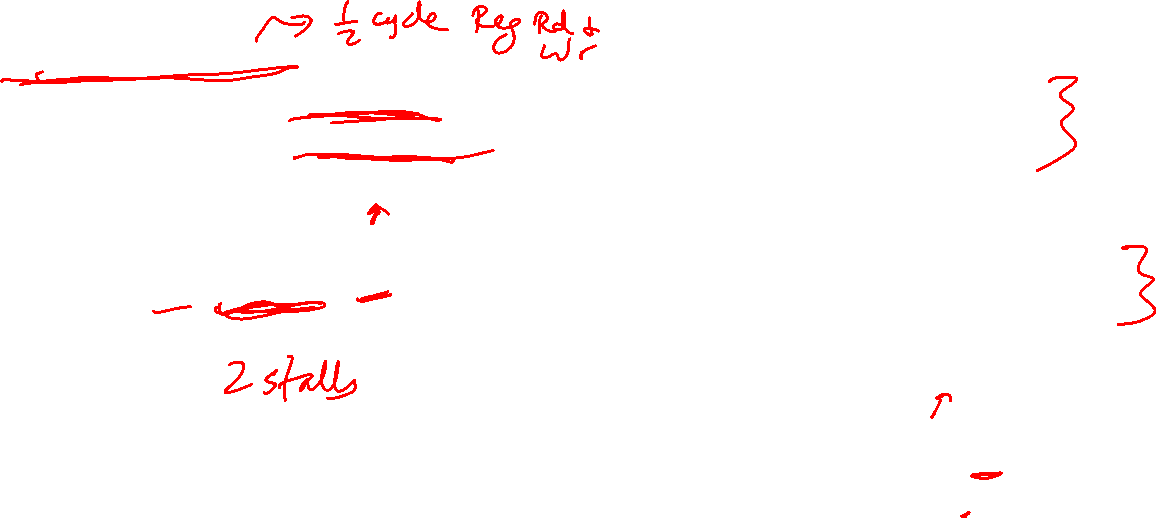 → 1/2 cycle Reg Rd &
Wr
2 stalls